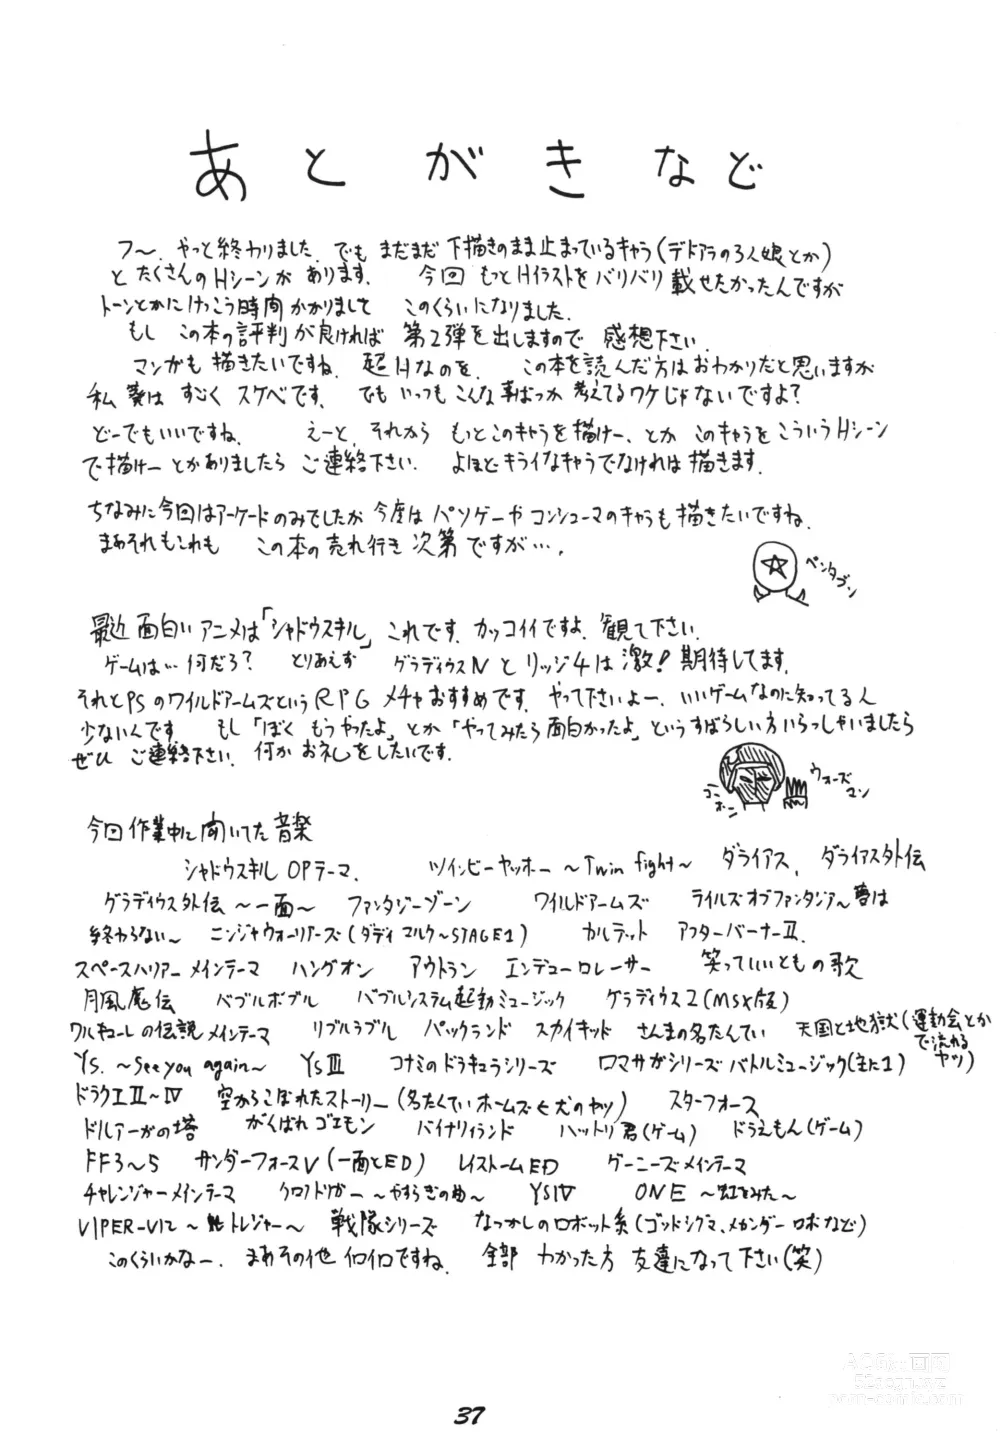 あとがきなど
フ〜、やっと終わりました。でも まだまだ 下描きのまま止まっているキャラ(デドアラの3人娘とか)
と たくさんのHシーンが あります。 今回 もっとHイラストを バリバリ 載せたかったんですが
トーンとかに けっこう時間かかりまして このくらいになりました。
もし この本の評判が良ければ 第2弾を出しますので 感想下さい。
マンガも 描きたいですね。超Hなのを。 この本を読んだ方はおわかりだと思いますが
私 葵は すごく スケベです。 でも いっつも こんな事ばっか 考えてるワケじゃないですよ?
どーでもいいですね。 えーと、それから もっとこのキャラを描けー、とか このキャラを こういうHシーン
で描けー とかありましたら ご連絡下さい。 よほどキライなキャラでなければ 描きます。
ちなみに今回はアーケードのみでしたが 今度は パソゲーや コンシューマのキャラも 描きたいですね。
まあそれもこれも この本の売れ行き 次第ですが…。
ペンタゴン
最近 面白いアニメは「シャドウスキル」 これです。カッコイイですよ。観て下さい。
ゲームは…何だろ? とりあえず グラディウスⅣ と リッジ4は 激!期待してます。
それとPSのワイルドアームズという RPG メチャおすすめです。やって下さいよー、いいゲームなのに知ってる人
少ないんです。 もし「ぼく もうやったよ」とか「やってみたら 面白かったよ」というすばらしい方いらっしゃいましたら
ぜひ ご連絡下さい。何か お礼をしたいです。
コーホー
ウォーズマン
今回 作業中に 聞いてた 音楽
シャドウスキル OPテーマ、 ツインビーヤッホー 〜Twin fight〜 ダライアス、ダライアス外伝
グラディウス外伝 〜一面〜 ファンタジーゾーン ワイルドアームズ テイルズオブファンタジア〜夢は
終わらない〜 ニンジャウォーリアーズ(ダディマルク〜STAGE1) カルテット アフターバーナーⅡ
スペースハリアー メインテーマ ハングオン アウトラン エンデューロレーサー 笑っていいともの歌
月風魔伝 バブルボブル バブルシステム起動ミュージック グラディウス2(MSX版)
ワルキューレの伝説 メインテーマ リブルラブル パックランド スカイキッド さんまの名たんてい 天国と地獄(運動会とか
で流れる
ヤツ)
Ys. 〜See you again〜 YsⅢ コナミのドラキュラシリーズ ロマサガシリーズ バトルミュージック(主に1)
ドラクエⅡ〜Ⅳ 空からこぼれたストーリー(名たんていホームズ 犬のヤツ) スターフォース
ドルアーガの塔 がんばれゴエモン バイナリィランド ハットリ君(ゲーム) ドラえもん(ゲーム)
FF3〜5 サンダーフォースⅤ(一面とED) レイストームED グーニーズメインテーマ
チャレンジャーメインテーマ クロノトリガー 〜やすらぎの曲〜 YSⅣ ONE 〜虹をみた〜
VIPER-V12 〜 トレジャー〜 戦隊シリーズ なつかしのロボット系(ゴッドシグマ、メカンダーロボなど)
このくらいかなー。 まあその他 イロイロですね。 全部 わかった方 友達になって下さい(笑)
37